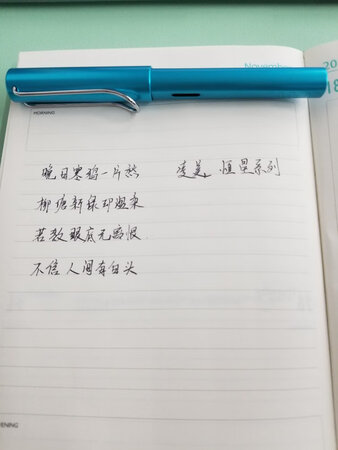 November 20
18
MORNING
晚日寒鸦一片愁 凌美 恒星系列
柳塘新绿却温柔
若教眼底无离恨
不信人间有白头
RNING